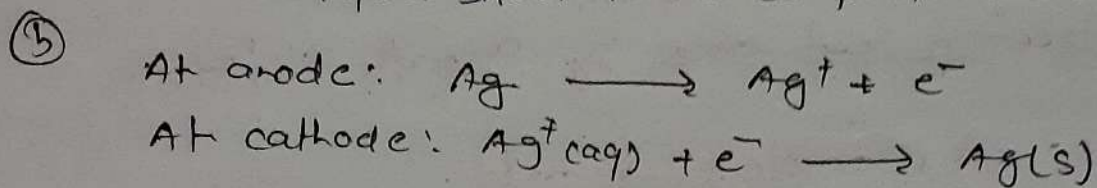 ③
At anode: Ag ⟶ Ag⁺ + e⁻
At cathode: Ag⁺(aq) + e⁻ ⟶ Ag(s)